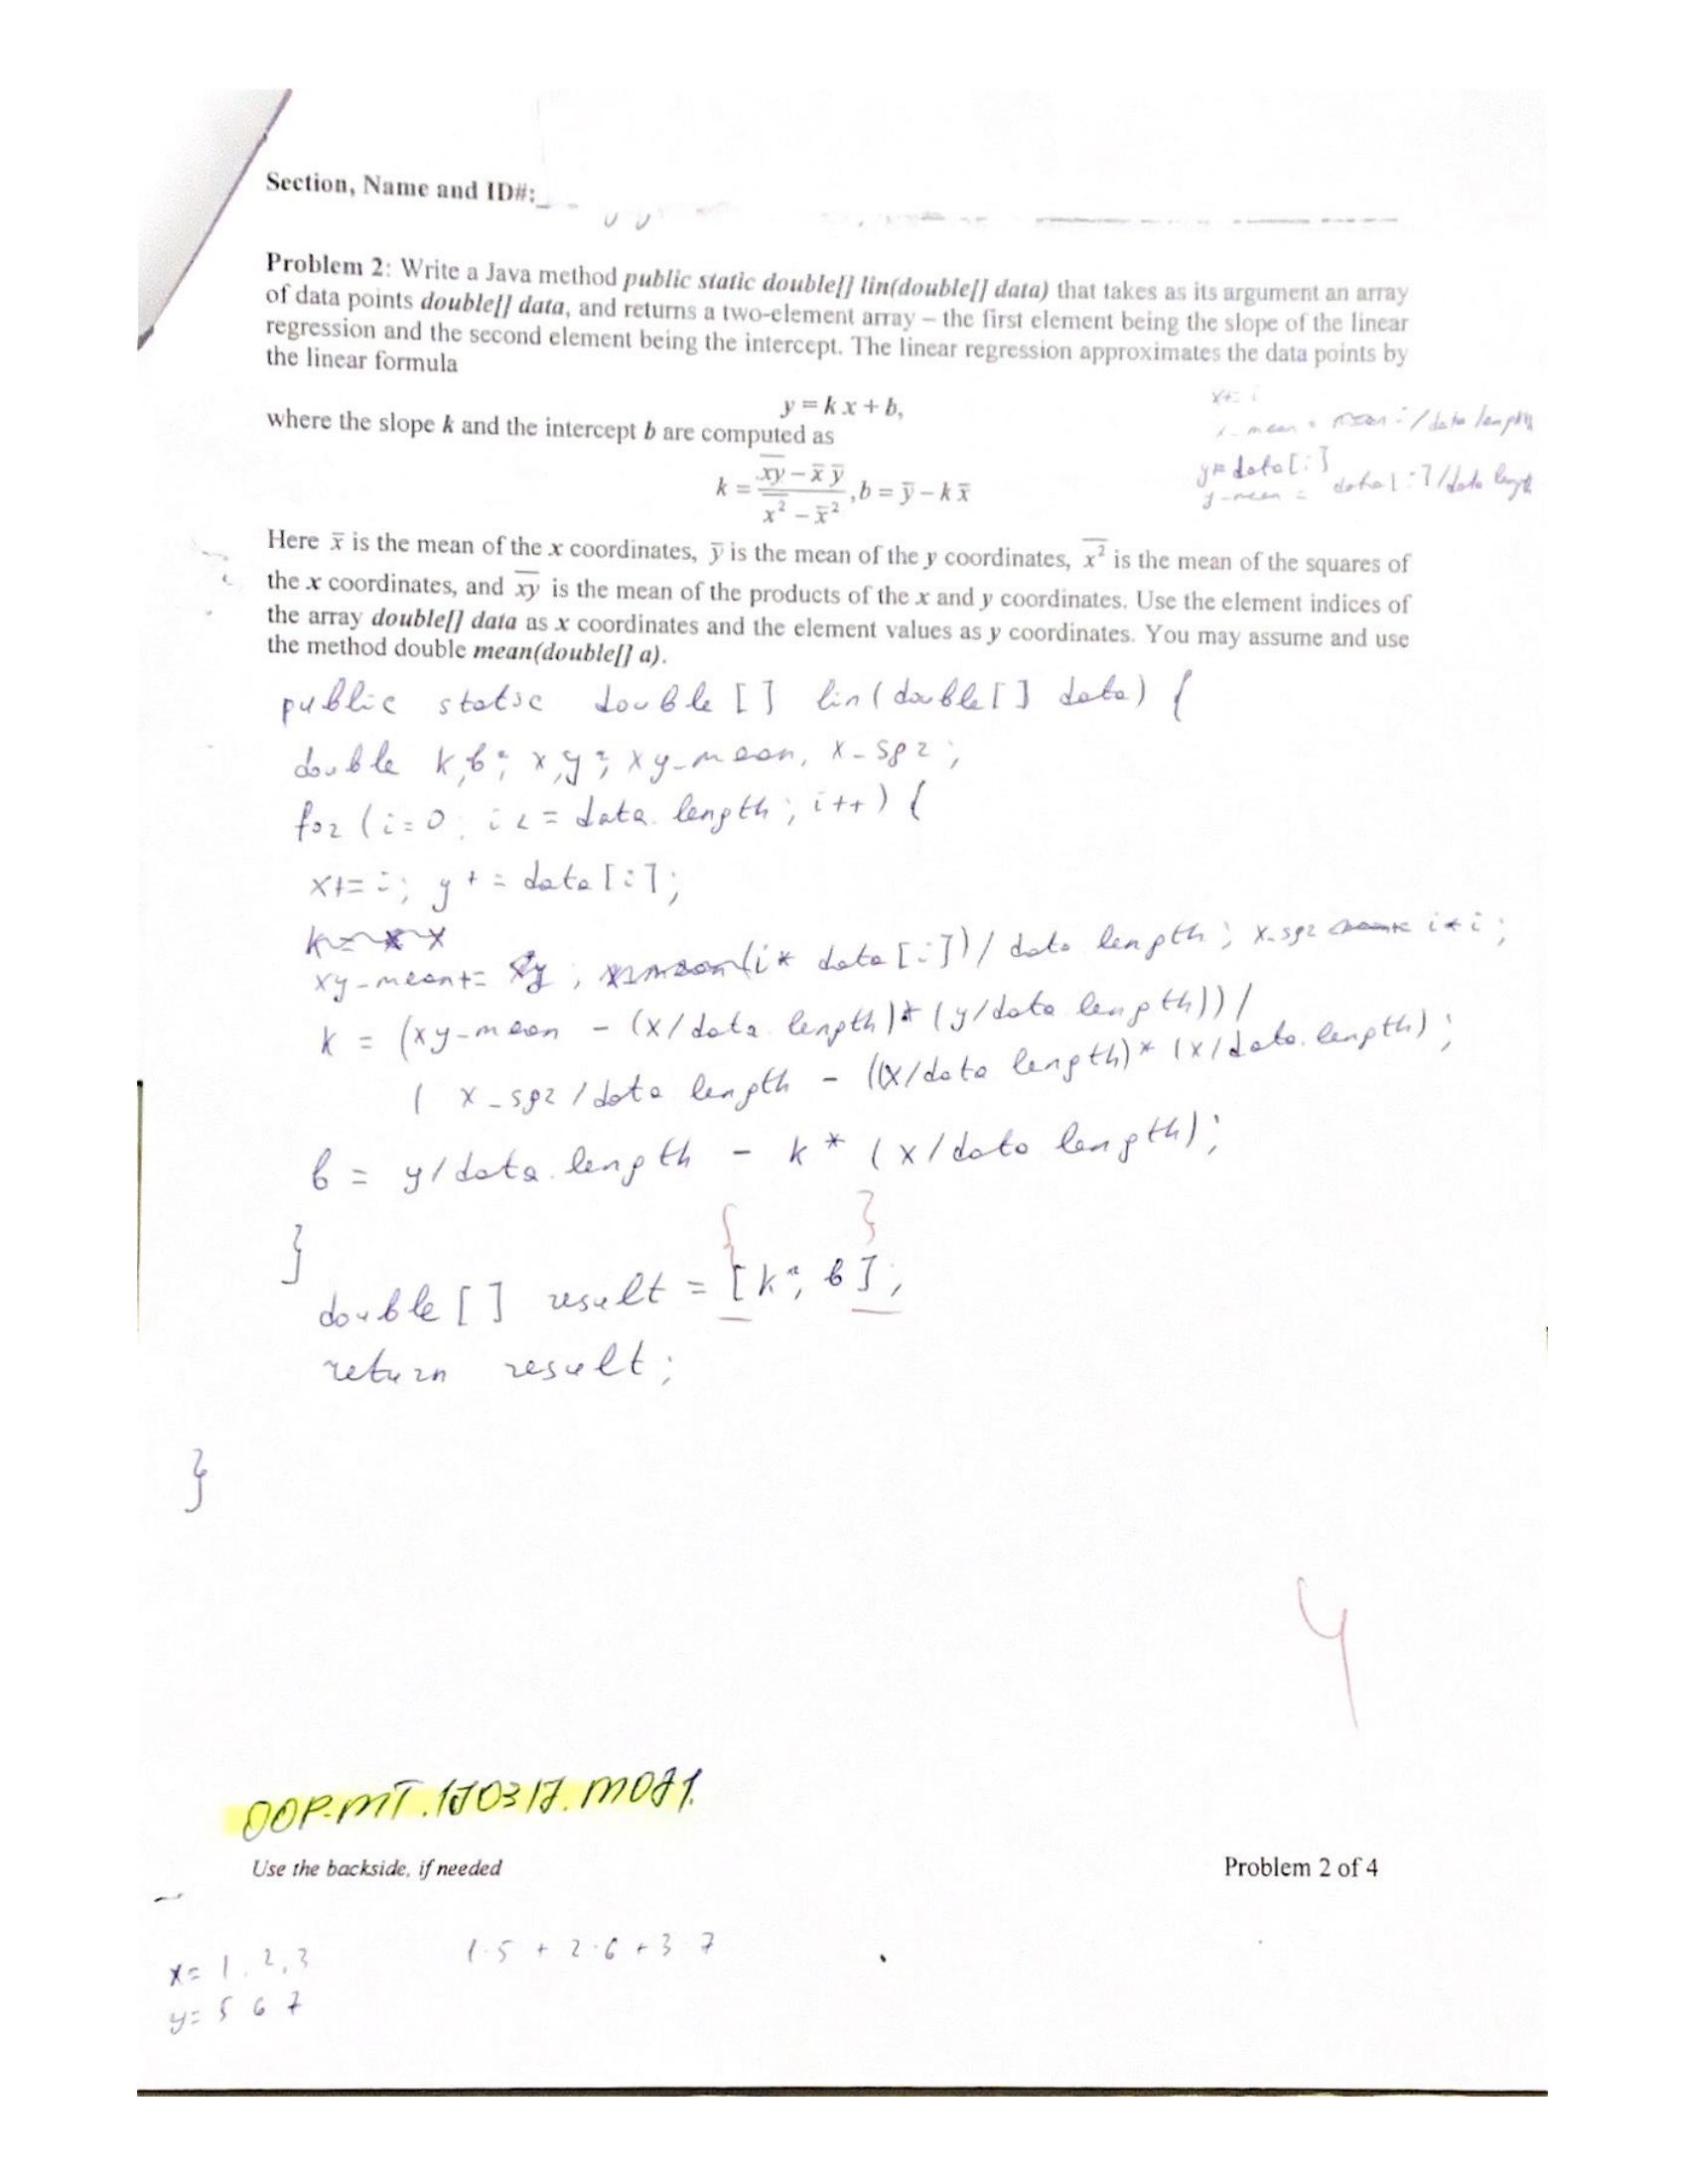 Section, Name and ID#:
Problem 2: Write a Java method public static double[] lin(double[] data) that takes as its argument an array
of data points double[] data, and returns a two-element array – the first element being the slope of the linear
regression and the second element being the intercept. The linear regression approximates the data points by
the linear formula
y = k x + b,
where the slope k and the intercept b are computed as
x+= i
x_mean = mean i/data length
y= data[i]
y_mean = data[i]/data length
k = (x̅y̅ – x̄ ȳ) / (x̅²̅ – x̄²), b = ȳ – k x̄
Here x̄ is the mean of the x coordinates, ȳ is the mean of the y coordinates, x̅²̅ is the mean of the squares of
the x coordinates, and x̅y̅ is the mean of the products of the x and y coordinates. Use the element indices of
the array double[] data as x coordinates and the element values as y coordinates. You may assume and use
the method double mean(double[] a).
public static double [] lin(double[] data) {
double k,b; x,y; xy_mean, x_sqr;
for (i=0; i<= data.length; i++) {
x+= i; y+= data[i];
xy_mean+= (i* data[i])/data length; x_sqr i*i;
k = (xy_mean - (x/data.length)* (y/data length))/
( x_sqr/data length - ((x/data length)* (x/data.length);
b = y/data.length - k* (x/data length);
}
{ }
double [] result = [k, b];
return result;
}
4
OOP.MT.170317.M071.
Use the backside, if needed
Problem 2 of 4
x= 1, 2, 3
1·5 + 2·6 + 3·7
y= 5 6 7